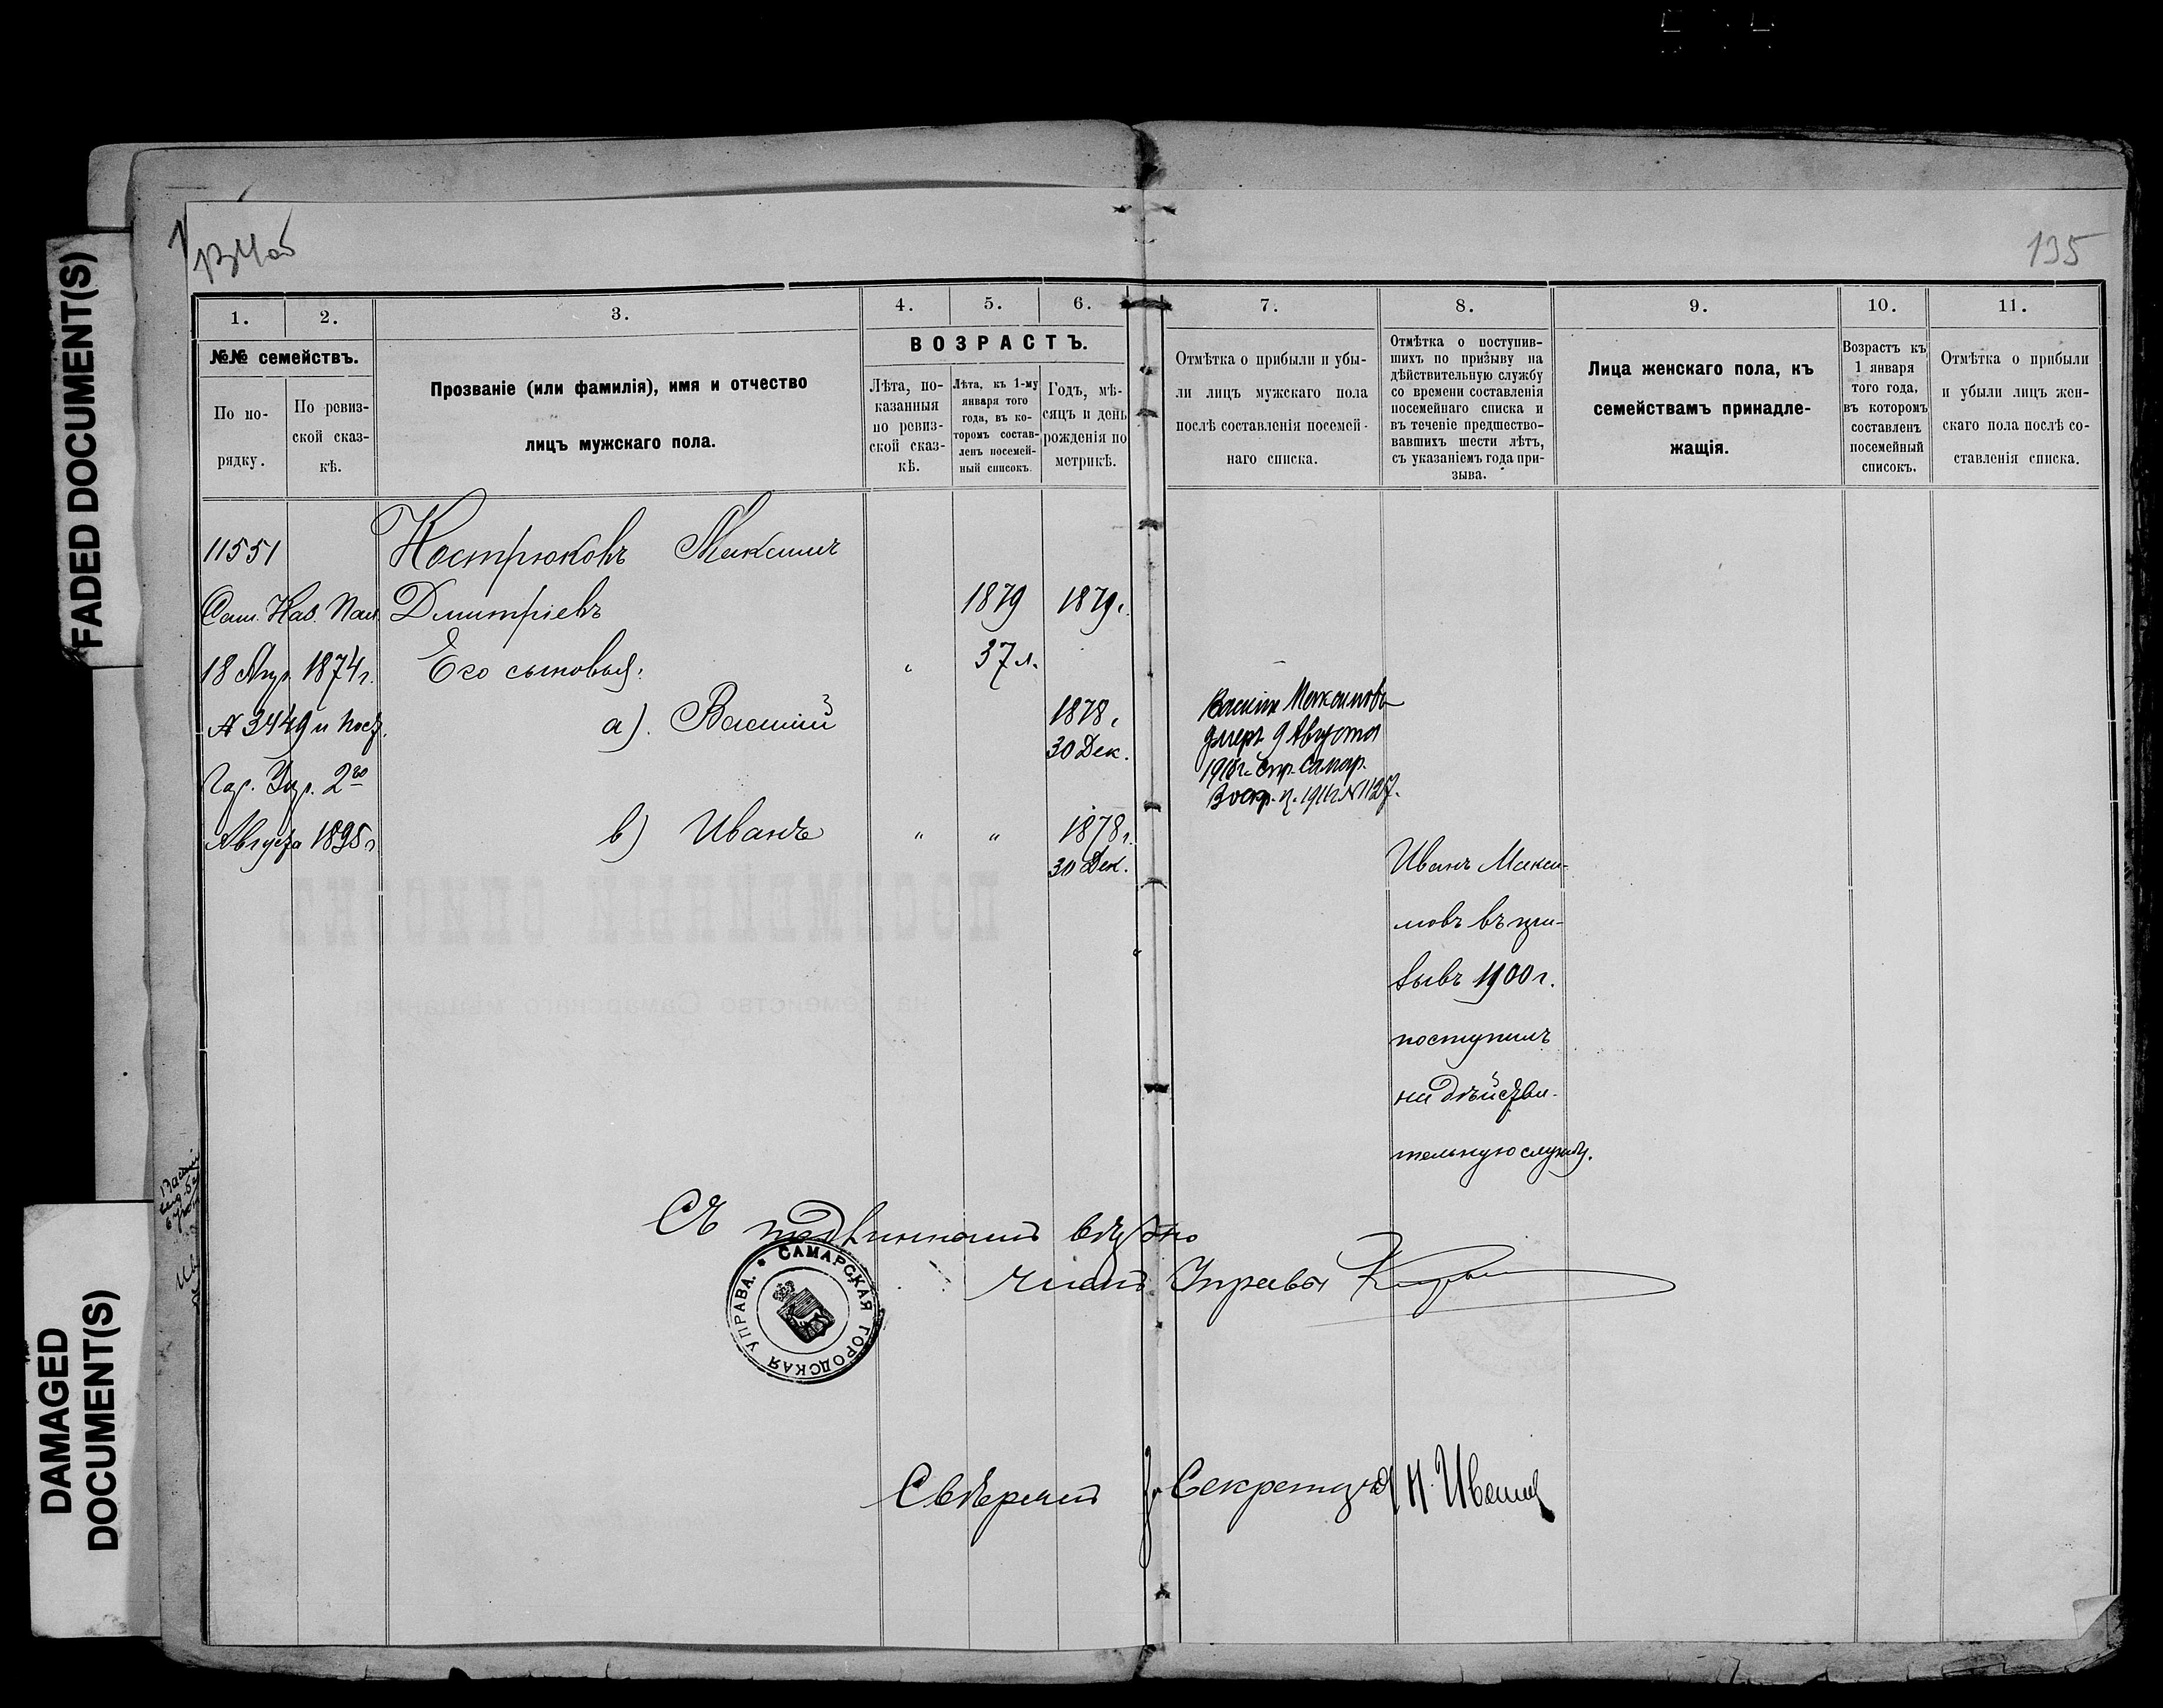 FADED DOCUMENT(S)
DAMAGED
DOCUMENT(S)
134об
135
1.
2.
3.
4.
5.
6.
7.
8.
9.
10.
11.
№№ семействъ.
По по-
рядку.
По ревиз-
ской сказ-
кѣ.
Прозваніе (или фамилія), имя и отчество
лицъ мужскаго пола.
ВОЗРАСТЪ.
Лѣта, по-
казанныя
по ревиз-
ской сказ-
кѣ.
Лѣта, къ 1-му
января того
года, въ ко-
торомъ состав-
ленъ посемей-
ный списокъ.
Годъ, мѣ-
сяцъ и день
рожденія по
метрикѣ.
Отмѣтка о прибыли и убы-
ли лицъ мужскаго пола
послѣ составленія посемей-
наго списка.
Отмѣтка о поступив-
шихъ по призыву на
дѣйствительную службу
со времени составленія
посемейнаго списка и
въ теченіе предшество-
вавшихъ шести лѣтъ,
съ указаніемъ года при-
зыва.
Лица женскаго пола, къ
семействамъ принадле-
жащія.
Возрастъ къ
1 января
того года,
въ которомъ
составленъ
посемейный
списокъ.
Отмѣтка о прибыли
и убыли лицъ жен-
скаго пола послѣ со-
ставленія списка.
11551
Костюковъ Максимъ
Сам. Каз. Пал.
Дмитріевъ
1879
1879г.
18 Апр. 1874г.
Его сыновья:
"
37 л.
№ 3449 и пост.
а). Василій
1878г.
30 Дек.
Гор. Упр. 2го
Августа 1895г
в) Иванъ
"
"
1878г.
30 Дек.
Василій Максимовъ
умеръ 9 Августа
Самар.
Иванъ Макси-
мовъ въ при-
зывъ 1900г.
поступилъ
на дѣйстви-
тельную службу.
Съ подлиннымъ вѣрно
Членъ Управы
САМАРСКАЯ ГОРОДСКАЯ УПРАВА.
Свѣрялъ
Секретаря
ПОСЕМЕЙНЫЙ СПИСОКЪ
на семейство Самарскаго мѣщанина